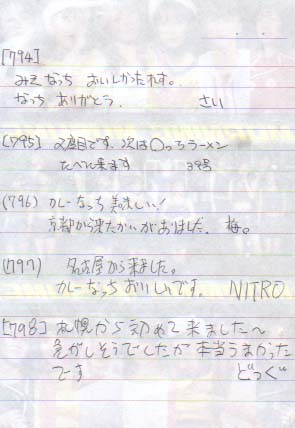 [794]
みそなっち おいしかったれす。
なっち ありがとう. さい
[795] 2度目です。次は〇っちラーメン
たべに来ます 39号
(796) カレーなっち美味しい!
京都から来たかいがありました. 梅。
(797) 名古屋から来ました。
カレーなっちおいしいです。 NITRO
[798] 札幌から初めて来ました〜
忙がしそうでしたが 本当うまかった
です どっぐ